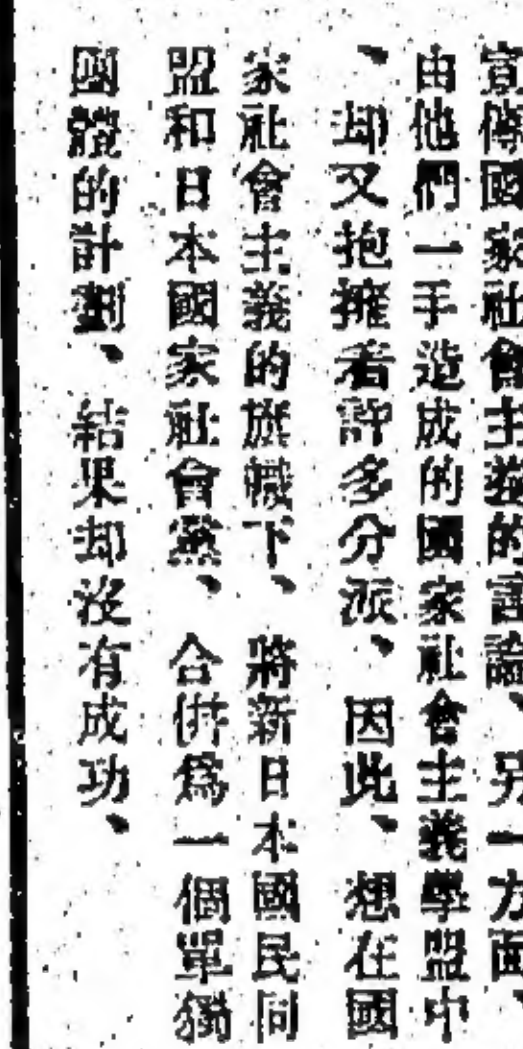 宣傳國家社會主義的言論、另一方面、
由他們一手造成的國家社會主義學盟中
、却又抱擁着許多分派、因此、想在國
家社會主義的旗幟下、將新日本國民同
盟和日本國家社會黨、合併爲一個單獨
國體的計劃、結果却沒有成功、